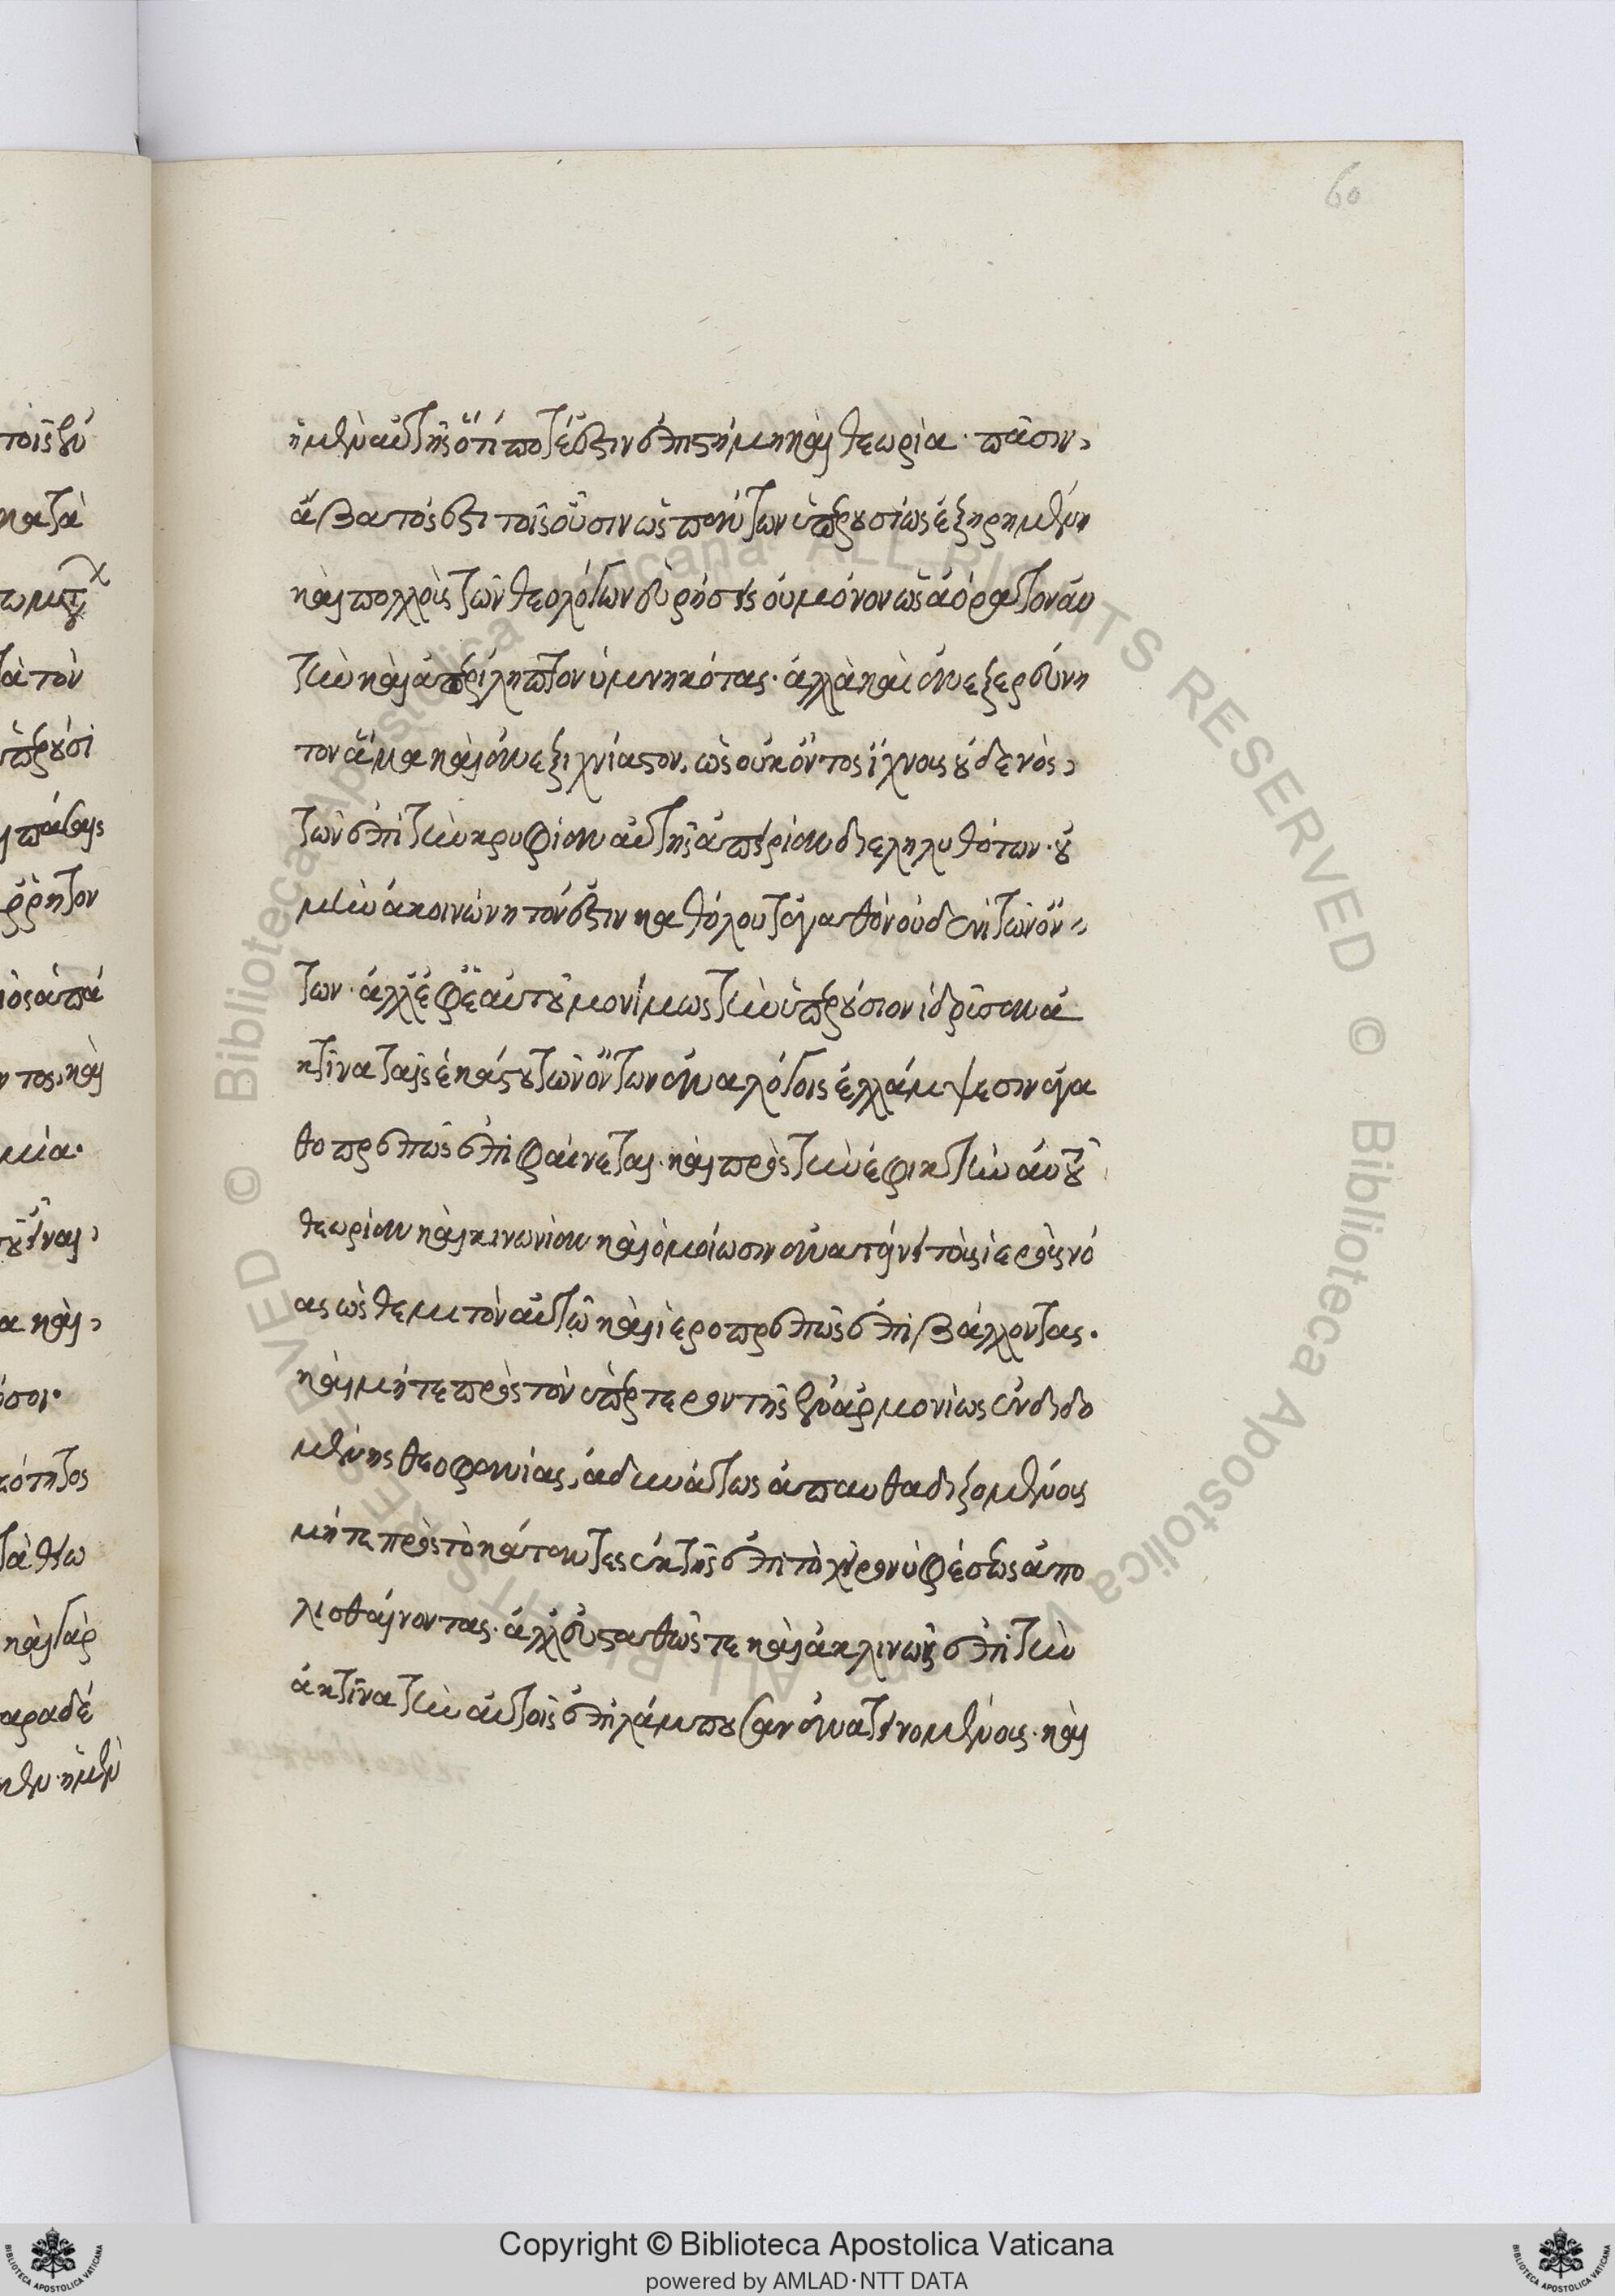 60
ἡ μὲν αὐτῆς ὅ τί ποτέ ἐστιν ἐπιστήμη καὶ θεωρία· πᾶσιν,
ἄβατός ἐστι τοῖς οὖσιν ὡς πάντων ὑπερουσίως ἐξηρημένη
καὶ πολλοὺς τῶν θεολόγων εὑρήσεις οὐ μόνον ὡς ἀόρατον αὐ
τὴν καὶ ἀπερίληπτον ὑμνηκότας· ἀλλὰ καὶ ἀνεξερεύνη
τον ἅμα καὶ ἀνεξιχνίαστον, ὡς οὐκ ὄντος ἴχνους οὐδενὸς,
τῶν ἐπὶ τὴν κρυφίαν αὐτῆς ἀπειρίαν διεληλυθότων· οὐ
μὴν ἀκοινώνητόν ἐστιν καθόλου τἀγαθὸν οὐδενὶ τῶν ὄν
των· ἀλλ' ἐφ' ἑαυτοῦ μονίμως τὴν ὑπερούσιον ἱδρῦσαν ἀ
κτῖνα ταῖς ἑκάστου τῶν ὄντων ἀναλόγοις ἐλλάμψεσιν ἀγα
θοπρεπῶς ἐπιφαίνεται· καὶ πρὸς τὴν ἐφικτὴν αὐτοῦ
θεωρίαν καὶ κινωνίαν καὶ ὁμοίωσιν ἀνατείνει τοὺς ἱεροὺς νό
ας ὡς θεμιτὸν αὐτῷ καὶ ἱεροπρεπῶς ἐπιβάλλοντας·
καὶ μήτε πρὸς τὸν ὑπέρτερον τῆς ἐναρμονίως ἐνδιδο
μένης θεοφανίας, ἀδυνάτως ἀπαυθαδιζομένους
μήτε πρὸς τὸ κάταντες ἐκ τῆς ἐπὶ τὸ χεῖρον ὑφέσεως ἀπο
λισθαίνοντας· ἀλλ' εὐσταθῶς τε καὶ ἀκλινῶς ἐπὶ τὴν
ἀκτῖνα τὴν αὐτοῖς ἐπιλάμπουσαν ἀνατεινομένους· καὶ
Copyright © Biblioteca Apostolica Vaticana
powered by AMLAD·NTT DATA